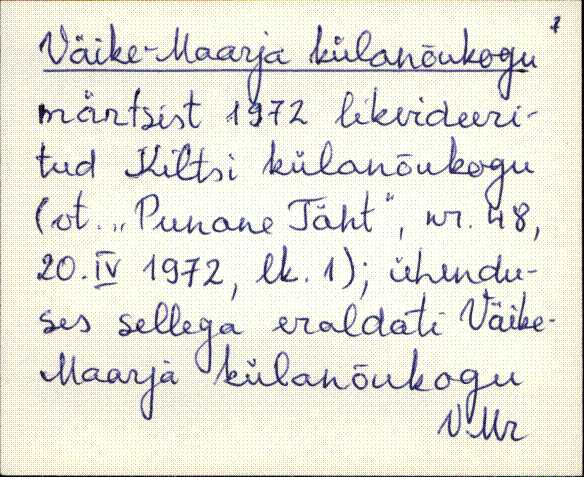 7
Väike-Maarja külanõukogu
märtsist 1972 likvideeri-
tud Kiltsi külanõukogu
(vt. „Punane Täht“, nr. 48,
20. IV 1972, lk. 1); ühendu-
ses sellega eraldati Väike-
Maarja külanõukogu
V. Mr